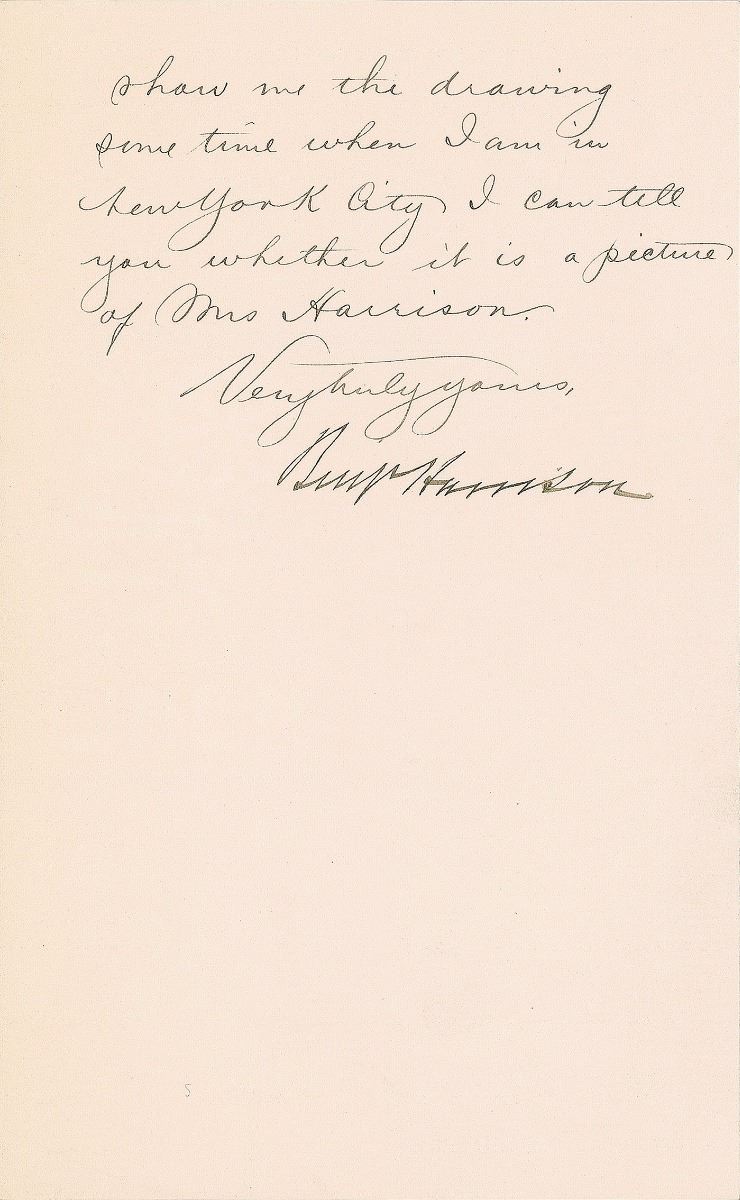 show me the drawing
some time when I am in
New York City I can tell
you whether it is a picture
of Mrs Harrison.
Very truly yours,
Benj Harrison